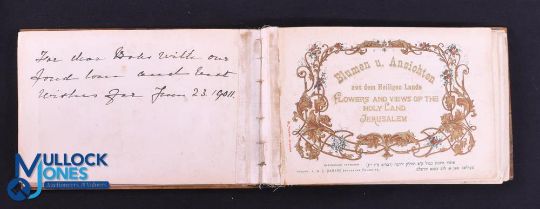 For dear Dots with our
fond love and best
Wishes for June 23. 1901.
Blumen u. Ansichten
aus dem Heiligen Lande
FLOWERS AND VIEWS OF THE
HOLY LAND
JERUSALEM
MULLOCK
JONES
Auctioneers & Valuers